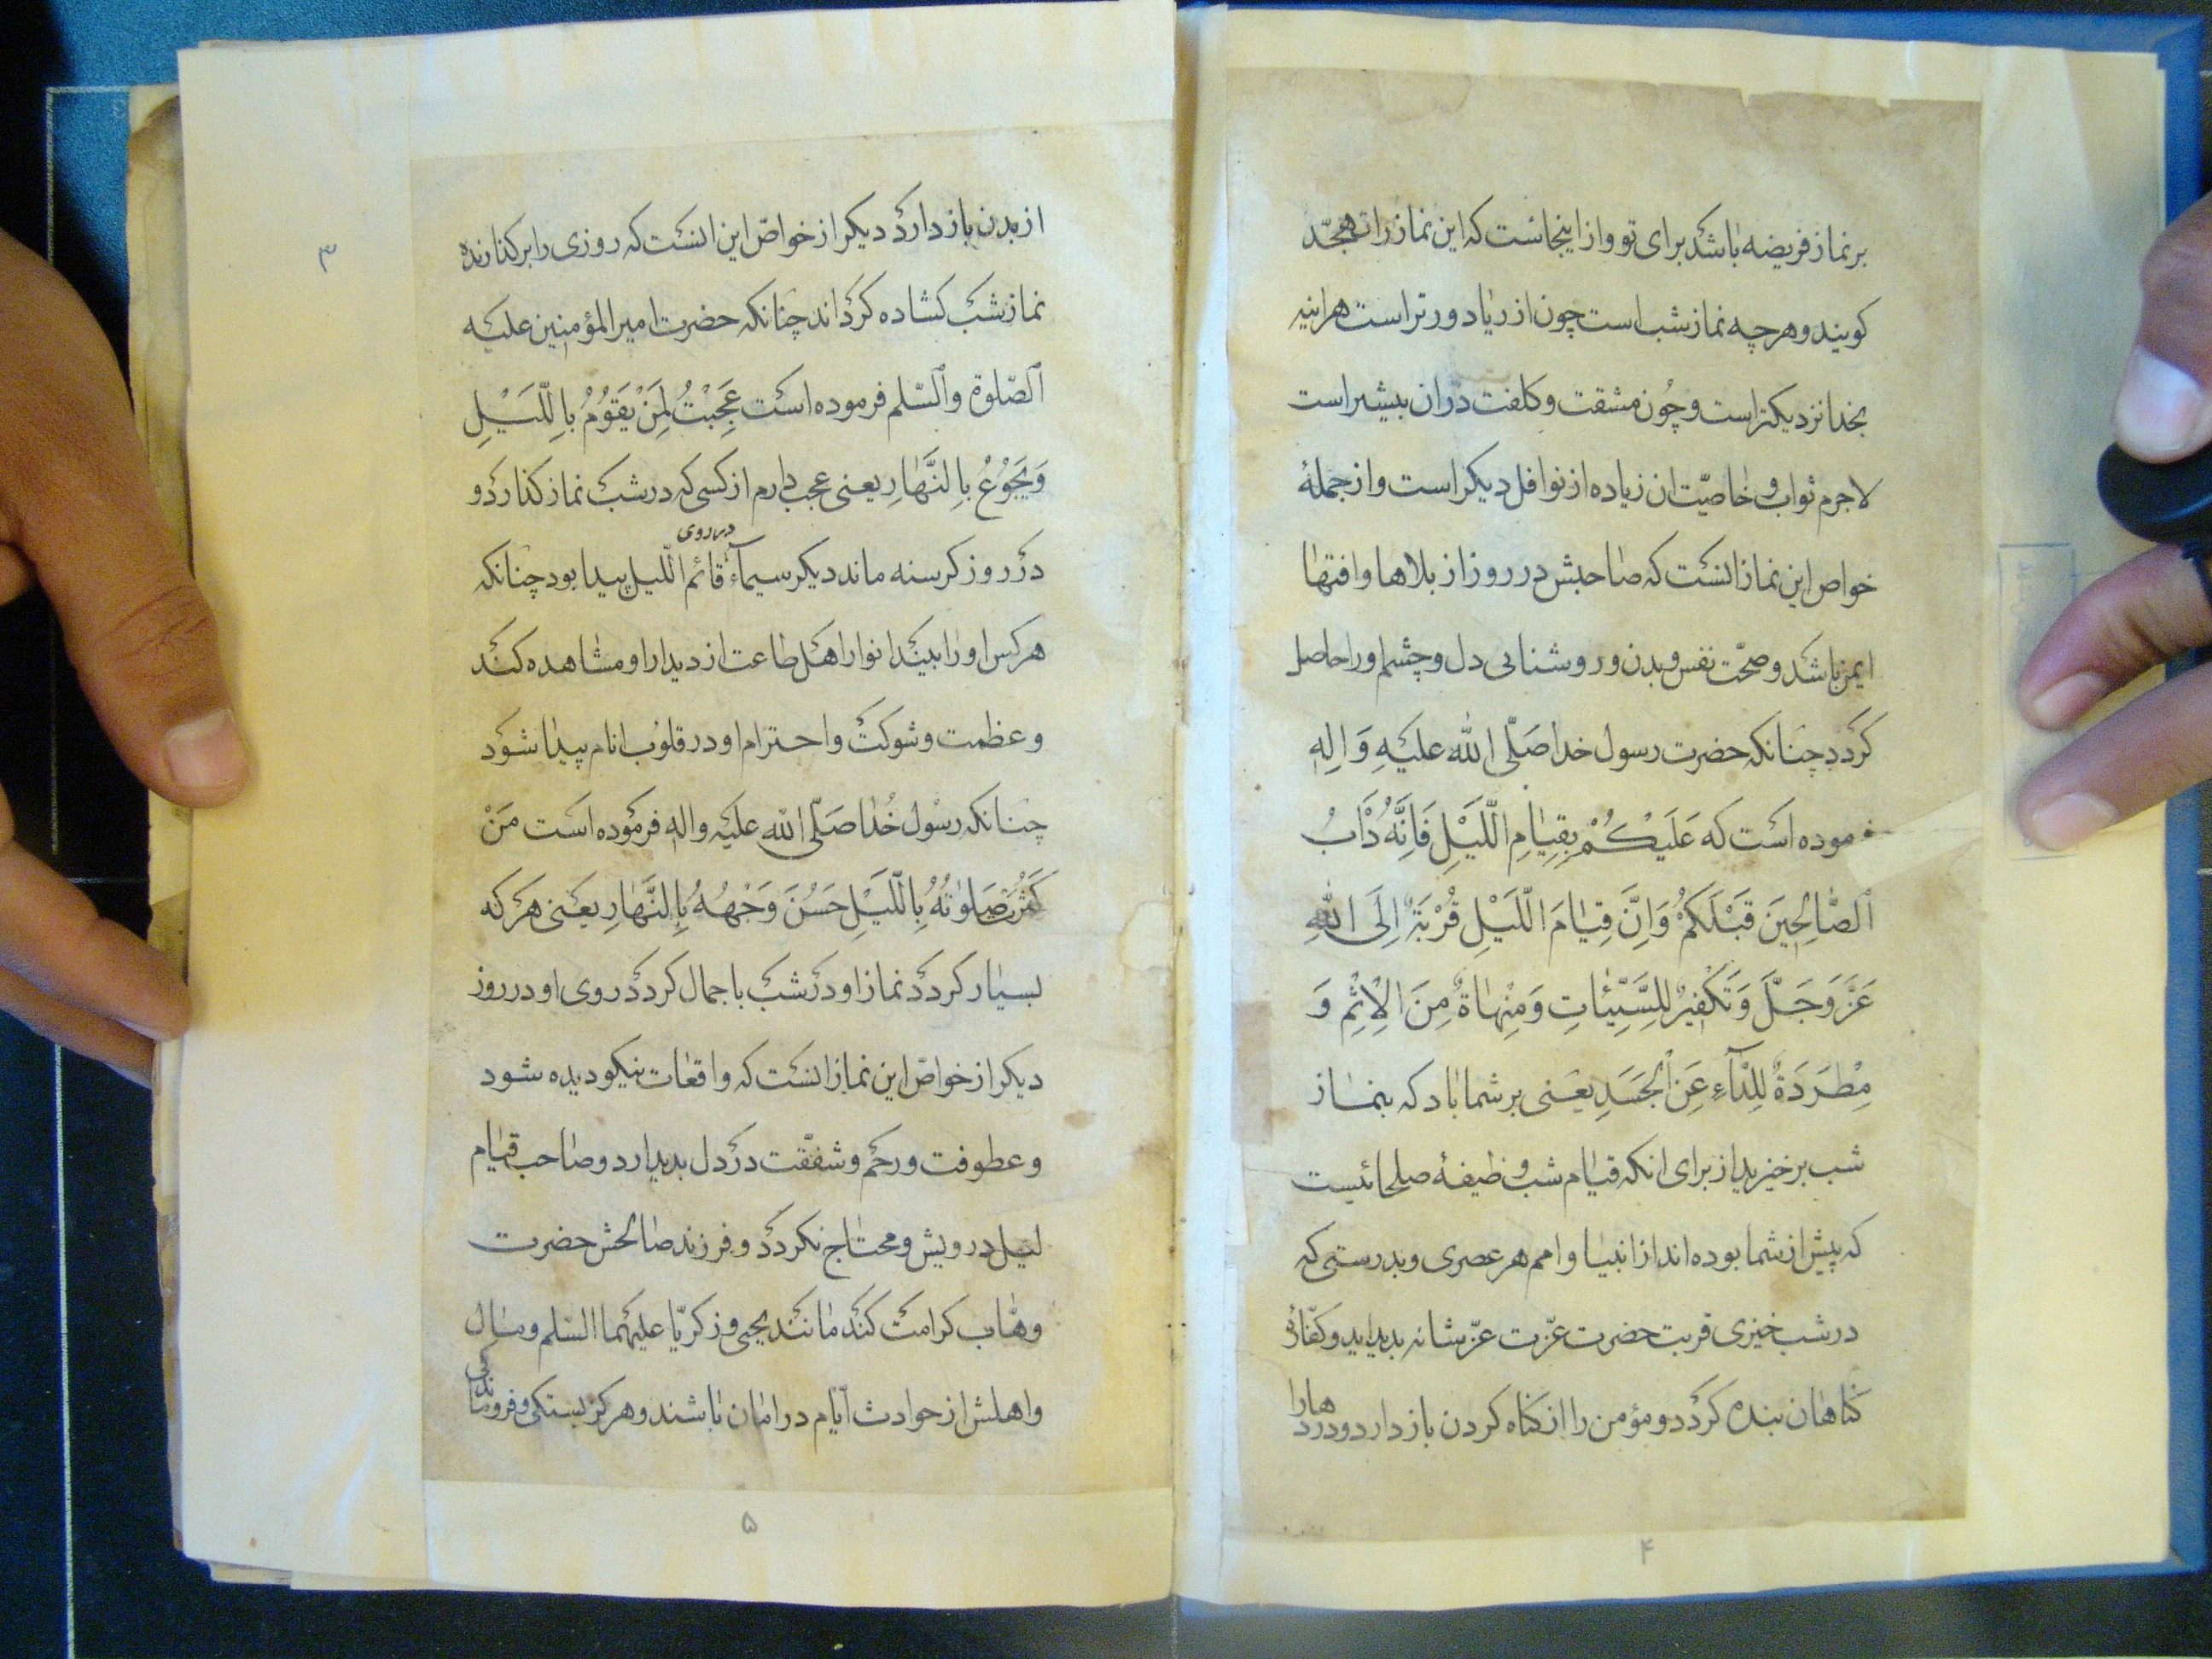 برنماز فریضه باشد برای تو و از اینجاست که این نماز را تهجّد
کویند و هرچه نماز شب است چون از ریا دورتر است هراینه
بخدا نزدیکتر است و چون مشقت و کلفت دران بیشتر است
لاجرم ثواب و خاصیّت ان زیاده از نوافل دیکر است و از جملۀ
خواص این نماز انست که صاحبش در روز از بلاها و افتها
ایمن باشد و صحّت نفس و بدن و روشنایی دل و چشم او را حاصل
کردد چنانکه حضرت رسول خدا صَلّی الله علیهِ وَالِهِ
فرموده است که عَلَیْکُمْ بِقِیٰامِ الَّلیْلِ فَاِنَّهُ دَاْبُ
الصّٰالِحینَ قَبْلَکُمْ وَاِنَّ قِیٰامَ الَّلیْلِ قُرْبَةٌ اِلَی اللهِ
عَزَّ وَجَلَّ وَتَکْفیرٌ لِلسَّیِّئٰاتِ وَمِنْهٰاةٌ مِنَ الْاِثْمِ وَ
مِطْرَدَةٌ لِلدّٰآءِ عَنِ الْجَسَدِ یعنی بر شما باد که بنماز
شب برخیزید از برای انکه قیام شب وظیفۀ صلحائیست
که پیش از شما بوده اند از انبیا و امم هر عصری و بدرستی که
در شب خیزی قربت حضرت عزّت عزّ شانه بدید اید و کفّارۀ
کناهان بنده کردد و مؤمن را از کناه کردن باز دارد و دردهارا
۴
از بدن باز دارد دیکر از خواصّ این انست که روزی را بر کذارنده
۳
نماز شب کشاده کرداند چنانکه حضرت امیرالمؤمنین علیه
الصّلوة والسّلم فرموده است عَجِبْتُ لِمَنْ یَقُوْمُ بِاللَّیْلِ
وَیَجُوْعُ بِالنَّهٰارِ یعنی عجب دارم از کسی که در شب نماز کذارد و
در روز کرسنه ماند دیکر سیمآء در روی قائم الّلیل پیدا بود چنانکه
هرکس او را بیند انوار اهل طاعت از دیدار او مشاهده کند
و عظمت و شوکت و احترام او در قلوب انام پیدا شود
چنانکه رسول خدا صَلّی الله علیه واله فرموده است مَنْ
کَثُرَ صَلوٰتُهُ بِالَّلیْلِ حَسُنَ وَجْهُهُ بِالنَّهٰارِ یعنی هر که
بسیار کردد نماز او در شب با جمال کردد روی او در روز
دیکر از خواصّ این نماز انست که واقعات نیکو دیده شود
و عطوفت و رحم و شفقّت در دل بدید ارد و صاحب قیام
لیل درویش و محتاج نکردد و فرزند صالحش حضرت
وهّاب کرامت کند مانند یحیی و زکریّا علیهما السّلم و مال
و اهلش از حوادث ایّام در امان باشند و هرکز بستکی و فروماندکی
۵